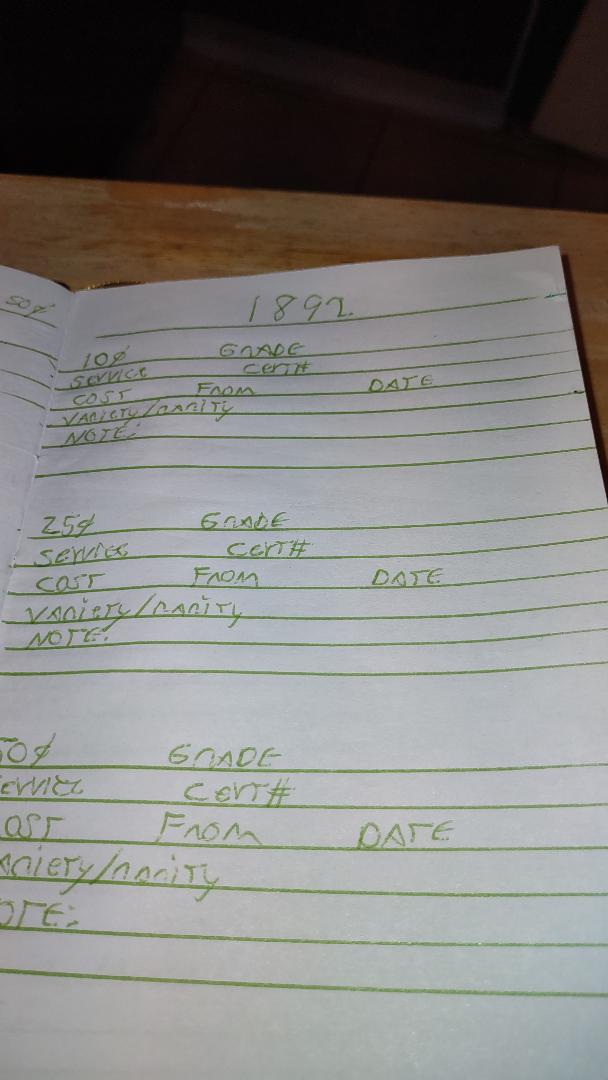 50¢
1892
10¢ GRADE
SERVICE CERT#
COST FROM DATE
VARIETY/RARITY
NOTE:
25¢ GRADE
SERVICE CERT#
COST FROM DATE
VARIETY/RARITY
NOTE:
50¢ GRADE
SERVICE CERT#
COST FROM DATE
VARIETY/RARITY
NOTE: